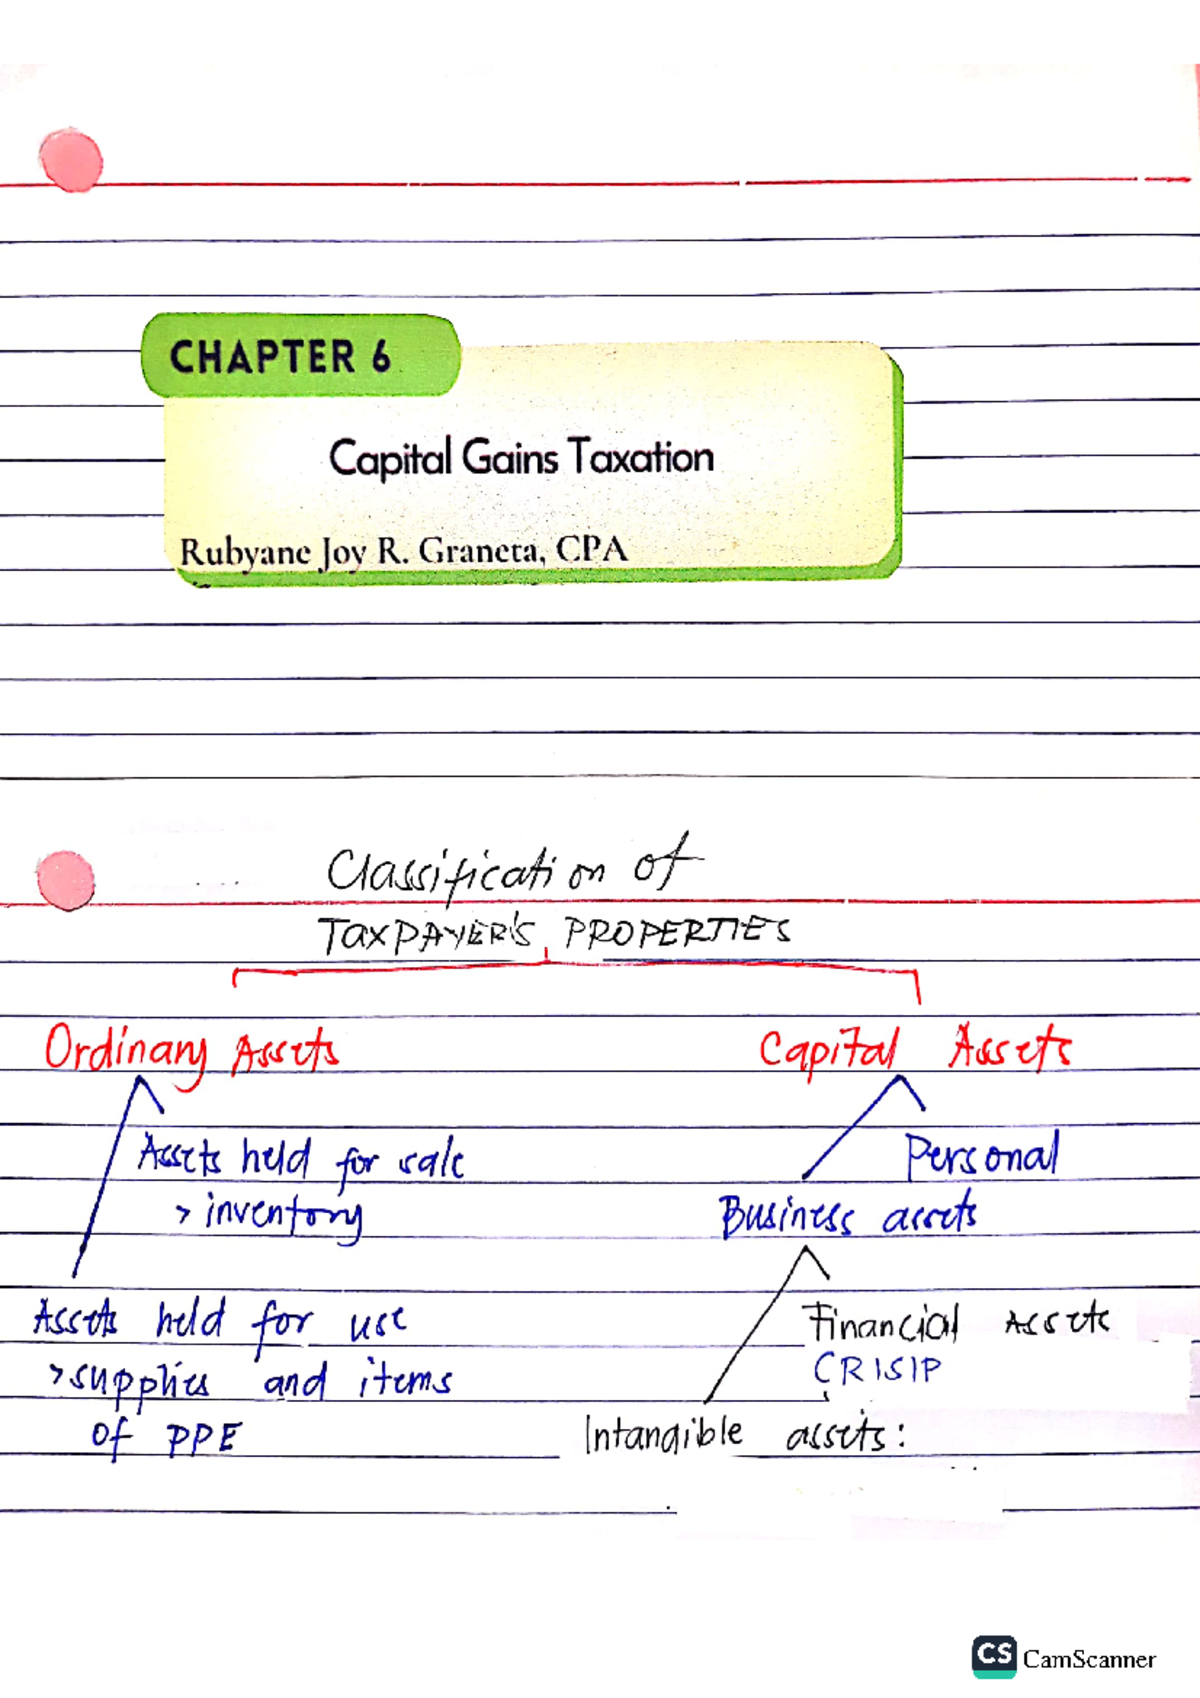 CHAPTER 6
Capital Gains Taxation
Rubyane Joy R. Graneta, CPA
Classification of
TAXPAYER'S PROPERTIES
Ordinary Assets
Capital Assets
Assets held for sale
> inventory
Personal
Business assets
Assets held for use
> supplies and items
of PPE
Financial Assets
CRISIP
Intangible assets:
CS CamScanner